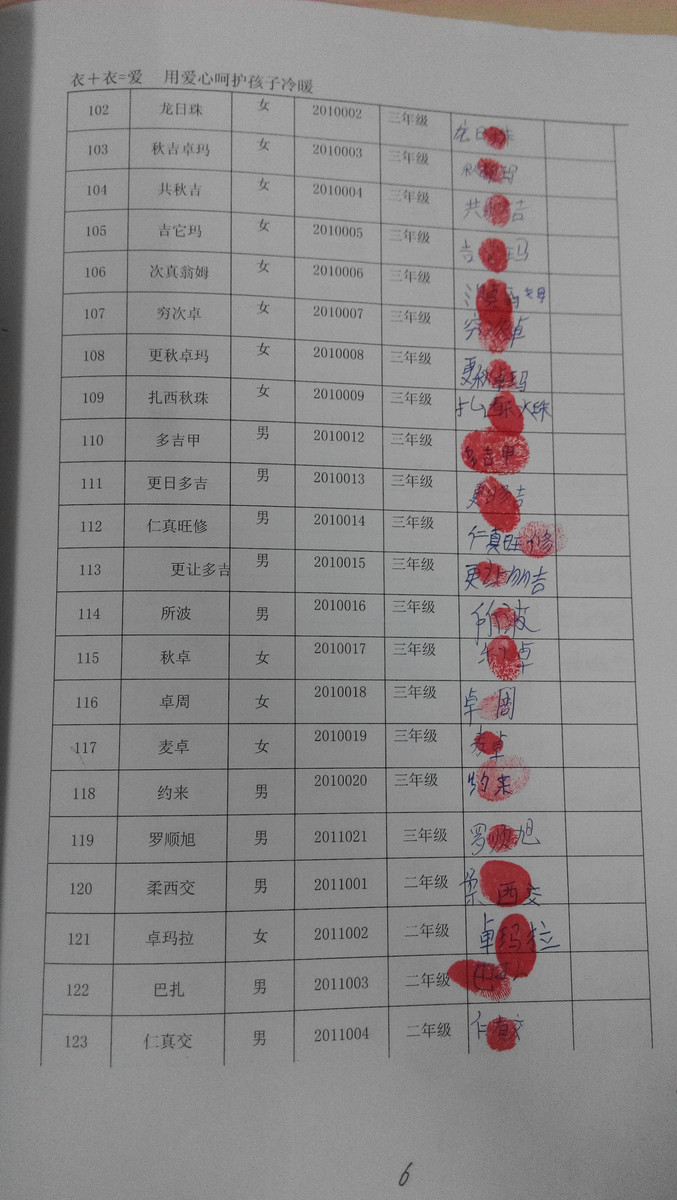 衣+衣=爱 用爱心呵护孩子冷暖
102 龙日珠 女 2010002 三年级 龙日珠
103 秋吉卓玛 女 2010003 三年级
104 共秋吉 女 2010004 三年级 共秋吉
105 吉它玛 女 2010005 三年级 吉它玛
106 次真翁姆 女 2010006 三年级
107 穷次卓 女 2010007 三年级 穷次卓
108 更秋卓玛 女 2010008 三年级 更秋卓玛
109 扎西秋珠 女 2010009 三年级 扎西秋珠
110 多吉甲 男 2010012 三年级 多吉甲
111 更日多吉 男 2010013 三年级 更日多吉
112 仁真旺修 男 2010014 三年级 仁真旺修
113 更让多吉 男 2010015 三年级 更让多吉
114 所波 男 2010016 三年级 所波
115 秋卓 女 2010017 三年级 秋卓
116 卓周 女 2010018 三年级 卓周
117 麦卓 女 2010019 三年级 麦卓
118 约来 男 2010020 三年级 约来
119 罗顺旭 男 2011021 三年级 罗顺旭
120 柔西交 男 2011001 二年级 柔西交
121 卓玛拉 女 2011002 二年级 卓玛拉
122 巴扎 男 2011003 二年级
123 仁真交 男 2011004 二年级 仁真交
6